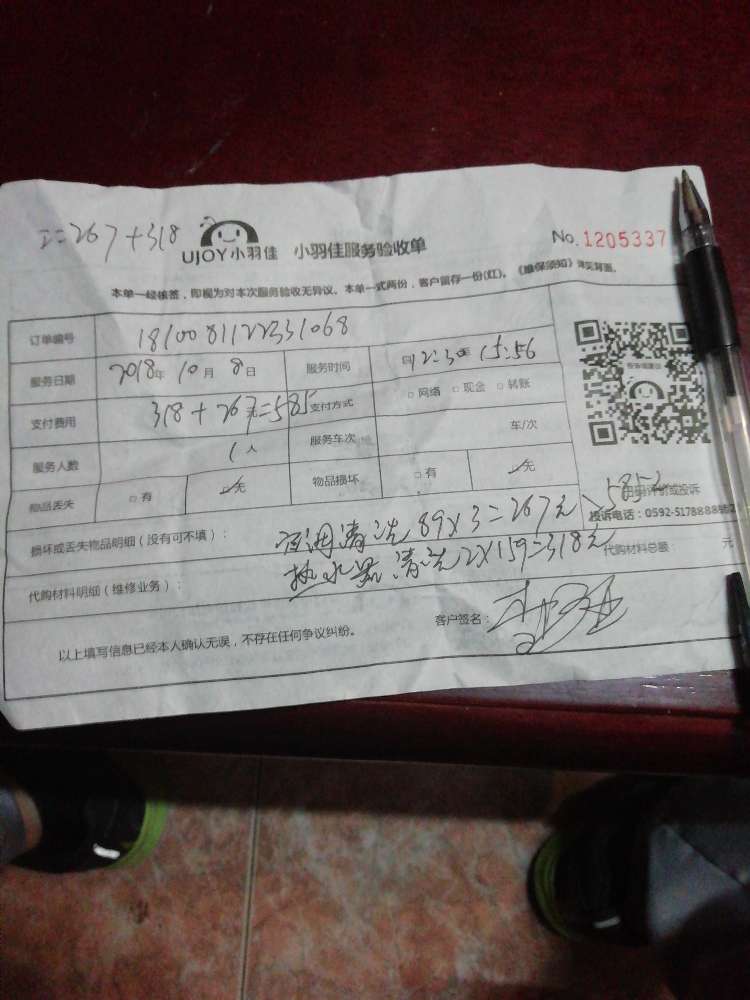 =267+318
UJOY小羽佳 小羽佳服务验收单 No.1205337
本单一经核签，即视为对本次服务验收无异议。本单一式两份，客户留存一份(红)。《维保须知》详见背面。
订单编号 1810081122331068
服务日期 2018年 10月 8日 服务时间 12:30 15:56
支付费用 318+267元=585 支付方式 □网络 □现金 □转账
服务人数 1人 服务车次 车/次
物品丢失 □有 无 物品损坏 □有 无
扫码评价或投诉
投诉电话：0592-5178888
损坏或丢失物品明细（没有可不填）： 空调清洗 89×3=267元 585元
代购材料明细（维修业务）： 热水器清洗2×159=318元 代购材料总额 元
以上填写信息已经本人确认无误，不存在任何争议纠纷。 客户签名：